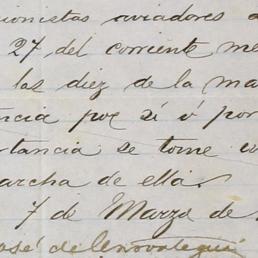 cionistas aviadores a
27 del corriente me
las diez de la ma
ncia por sí ó por
rtancia se tome co
archa de ella.
7 de Marzo de
José de